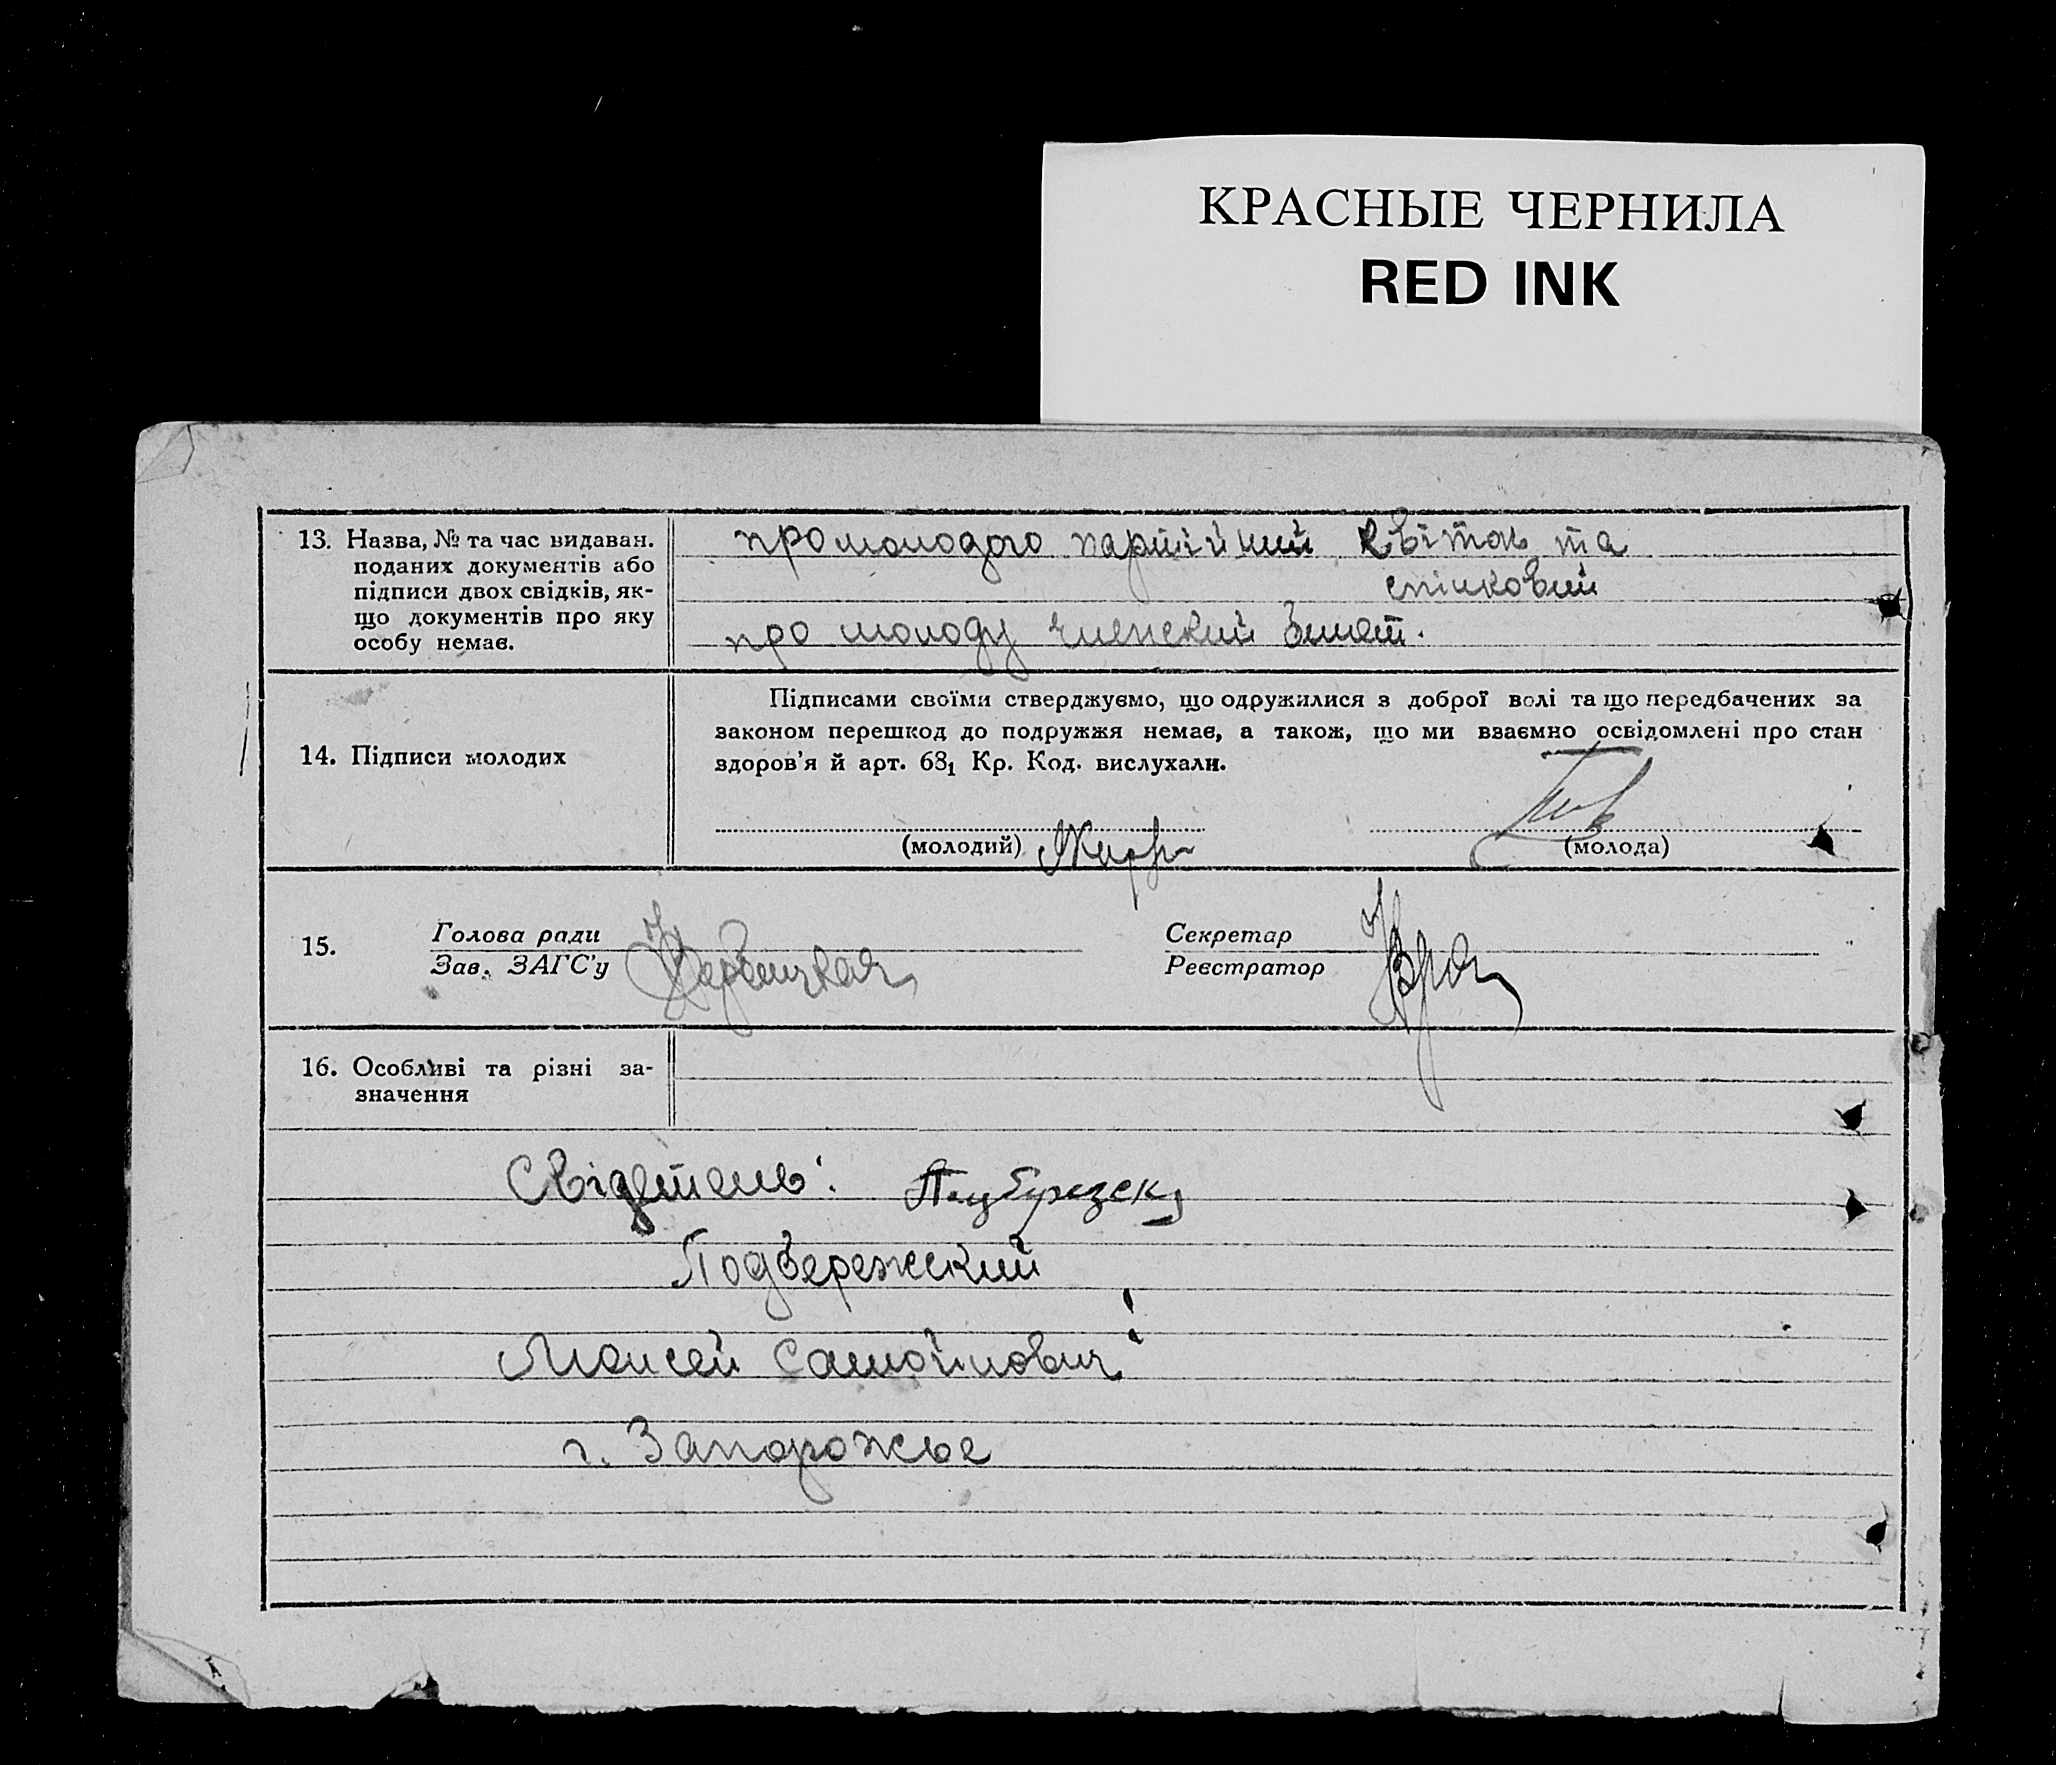 КРАСНЫЕ ЧЕРНИЛА
RED INK
13. Назва, № та час видаван.
поданих документів або
підписи двох свідків, як-
що документів про яку
особу немає.
про молодого партійний квіток та
спілковий
про молоду членский билет.
14. Підписи молодих
Підписами своїми стверджуємо, що одружилися з доброї волі та що передбачених за
законом перешкод до подружжя немає, а також, що ми взаємно освідомлені про стан
здоров'я й арт. 68₁ Кр. Код. вислухали.
(молодий)
(молода)
15.
Голова ради
Зав. ЗАГС'у
Секретар
Реєстратор
16. Особливі та різні за-
значення
Свідетель:
Подбережский
Моисей Самойлович
г. Запорожье